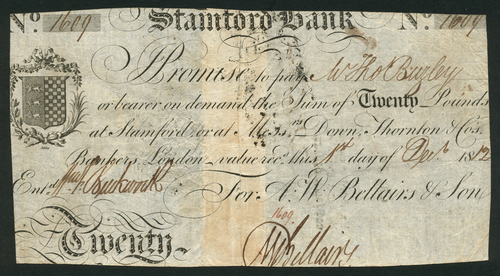 No. 1609 Stamford Bank No. 1609
I Promise to pay Mr Thos Bugley
or bearer on demand the Sum of Twenty Pounds
at Stamford or at Messrs. Down, Thornton & Cos.
Bankers London value recd. this 1st day of 1812
Entd. For A. W. Bellairs & Son
1609
Twenty Bellairs